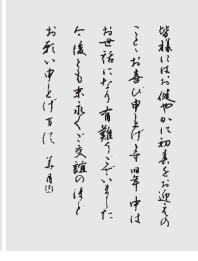 皆様にはお健やかに初春をお迎えの
ことゝお喜び申し上げます旧年中は
お世話になり有難うございました
今後とも末永くご交誼のほど
お願い申し上げます 美月